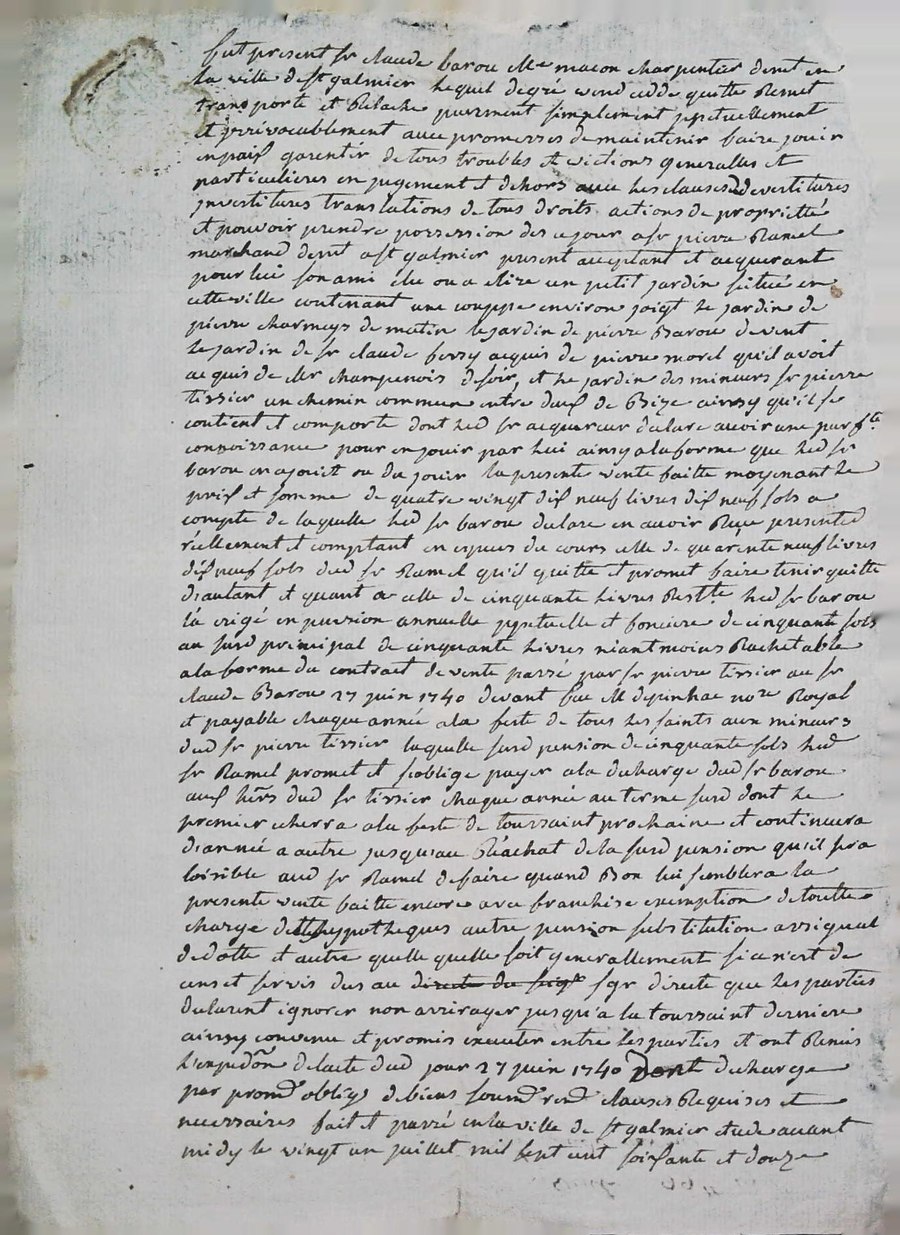 fut present sr claude barou Me macon charpentier demt en
la ville de st galmier lequel degré vend cedde quitte Remet
transporte et Relache purement simplement ppetuellement
et irrevocablement avec promesses de maintenir faire jouir
en paix garentir de tous troubles et evictions generalles et
particulieres en jugement et dehors avec les clauses devestitures
jnvestitures translations de tous droits actions de proprietté
et pouvoir prendre possession des ce jour a sr pierre Ramel
marchand demt a st galmier present acceptant et acquerant
pour lui son ami elu ou a elire un petit jardin situé en
cette ville contenant une couppe environ joigt le jardin de
pierre charmeys de matin le jardin de pierre Barou de vent
le jardin de sr claude fessy acquis de pierre morel qu'il avoit
acquis de Mr champenois de soir, et le jardin des mineurs sr pierre
tissier un chemin commun entre deux de Bize ainsy qu'il se
contient et comporte dont led sr acquereur declare avoir une parfte
connoissance pour en jouir par lui ainsy a la forme que led sr
barou en a jouit ou du jouir la presente vente faitte moyenant le
prix et somme de quatre vingt dix neuf livres dix neuf sols a
compte de laquelle led sr barou declare en avoir Reçu presentemt
réellement et comptant en especes du cours celle de quarente neuf livres
dix neuf sols dud sr Ramel qu'il quitte et promet faire tenir quitte
d'autant et quant a celle de cinquante livres Restte led sr barou
l'a erigé en pension annuelle ppetuelle et fonciere de cinquante sols
au susd principal de cinquante livres niantmoins Rachetable
a la forme du contrait de vente passé par sr pierre tissier au sr
claude Barou 27 juin 1740 devant feu Me depinhac nore Royal
et payable chaque année a la feste de tous les saints aux mineurs
dud sr pierre tissier laquelle susd pension de cinquante sols led
sr Ramel promet et s'oblige payer a la decharge dud sr barou
aux hers dud sr tissier chaque année au terme susd dont le
premier echerra a la feste de toussaint prochaine et continuera
d'année a autre jusqu'au Réachat de la susd pension qu'il sera
loisible aud sr Ramel de faire quand Bon lui semblera la
presente vente faitte encore avec franchise exemption de toutte
charge dettes hypotheques autre pension substitution assignat
de dotte et autre quelle quelle soit generallement si ce n'est de
cens et servis dus au directe du seigr sgr directe que les parties
declarent ignorer non arrirager jusqu'a la toussaint derniere
ainsy convenu et promis executer entre les parties et ont Remis
l'expedôn de l'acte dud jour 27 juin 1740 Dont decharge
par promt obligs de biens soumt rent clauses Requises et
necessaires fait et passé en la ville de st galmier etude avant
midy le vingt un juillet mil sept cent soixante et douze